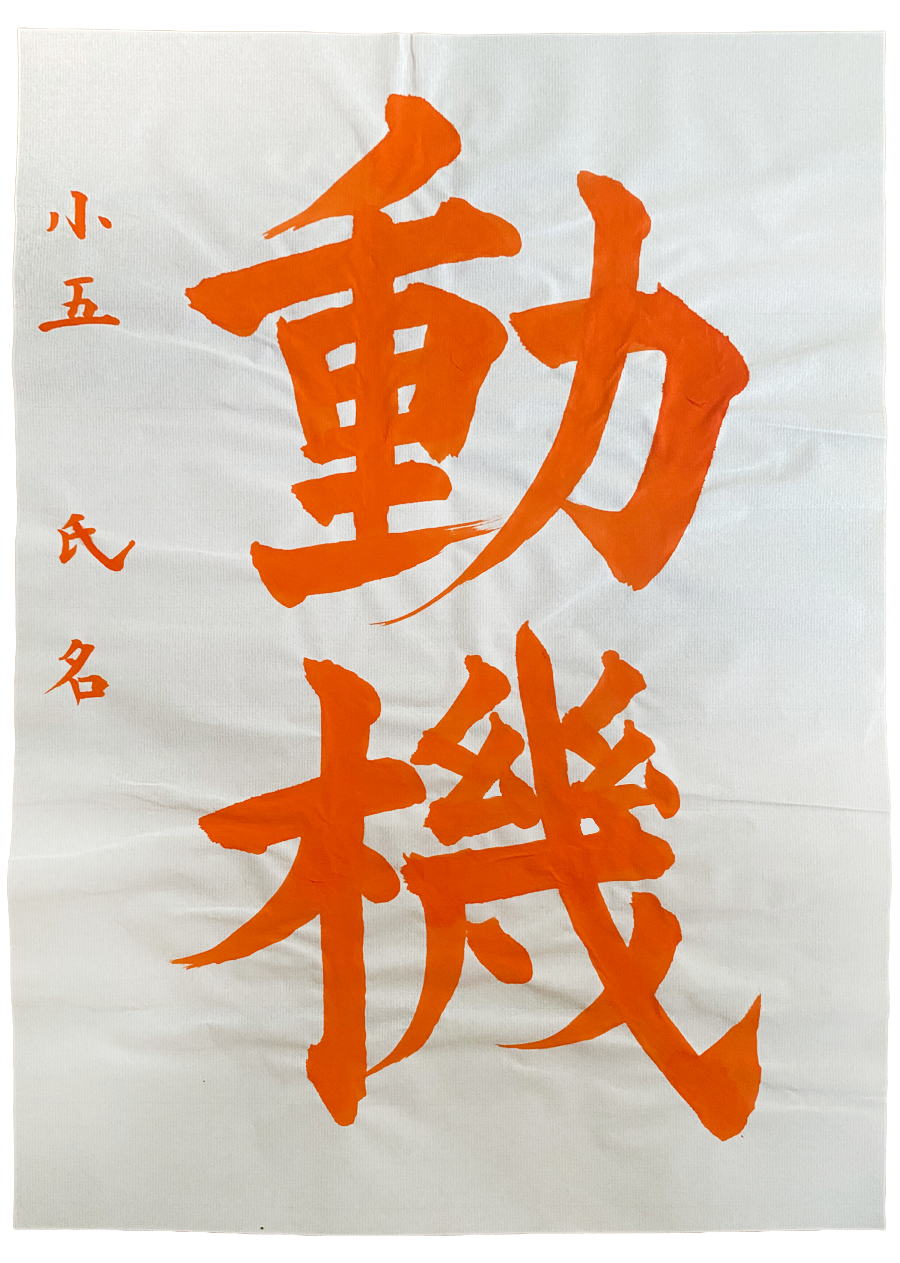 動機
小五 氏名